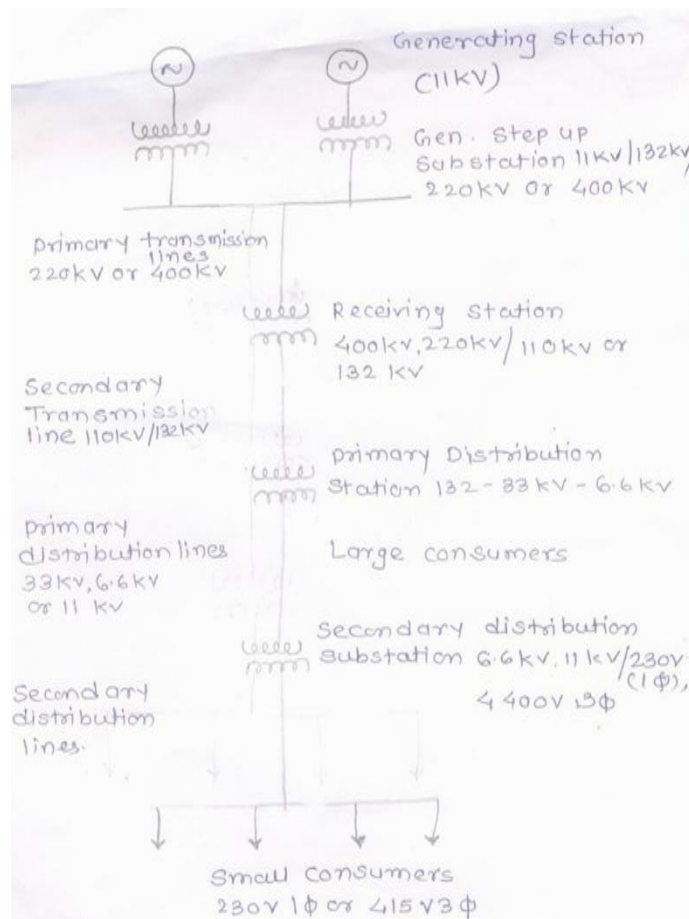 Generating station
(11KV)
Gen. Step up
Substation 11KV/132KV/
220KV or 400KV
primary transmission
lines
220KV or 400KV
Receiving Station
400KV, 220KV/110KV or
132 KV
Secondary
Transmission
line 110KV/132KV
primary Distribution
Station 132-33KV-6.6KV
primary
distribution lines
33KV, 6.6KV
or 11 KV
Large consumers
Secondary distribution
substation 6.6KV, 11 KV/230V
(1 ϕ),
4 400V 3ϕ
Secondary
distribution
lines.
Small consumers
230V 1ϕ or 415V 3ϕ